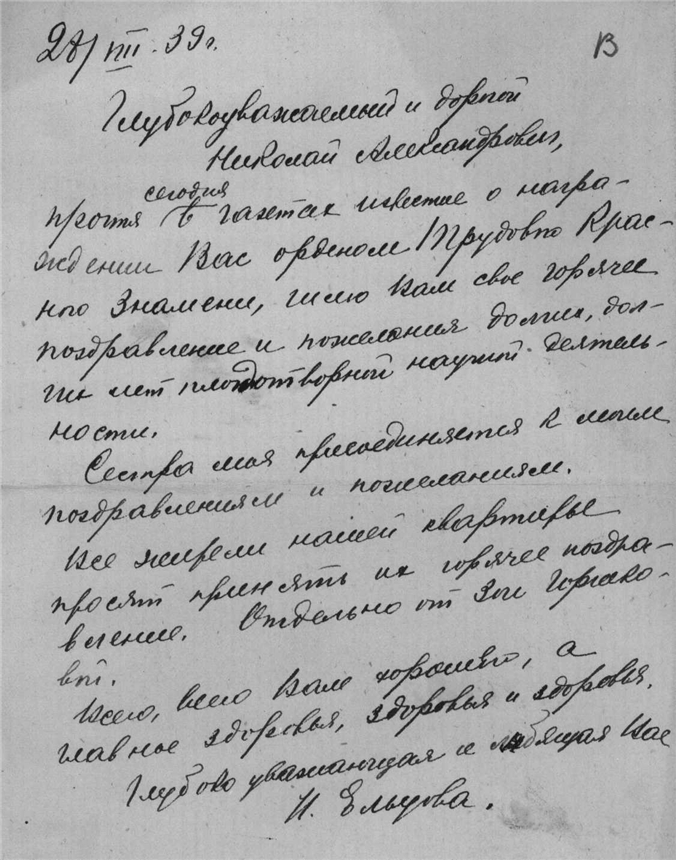 28/VIII.39г.
В
Глубокоуважаемый и дорогой
Николай Александрович,
сегодня
прочтя в газетах известие о награ-
ждении Вас орденом Трудового Крас-
ного Знамени, шлю Вам свое горячее
поздравление и пожелания долгих, дол-
гих лет плодотворной научной деятель-
ности.
Сестра моя присоединяется к моим
поздравлениям и пожеланиям.
Все жители нашей квартиры
просят принять их горячее поздра-
вление. Отдельно от Зои Горшко-
вой.
Всего, всего Вам хорошего, а
главное здоровья, здоровья и здоровья.
Глубоко уважающая и любящая Вас
Н. Ельцова.